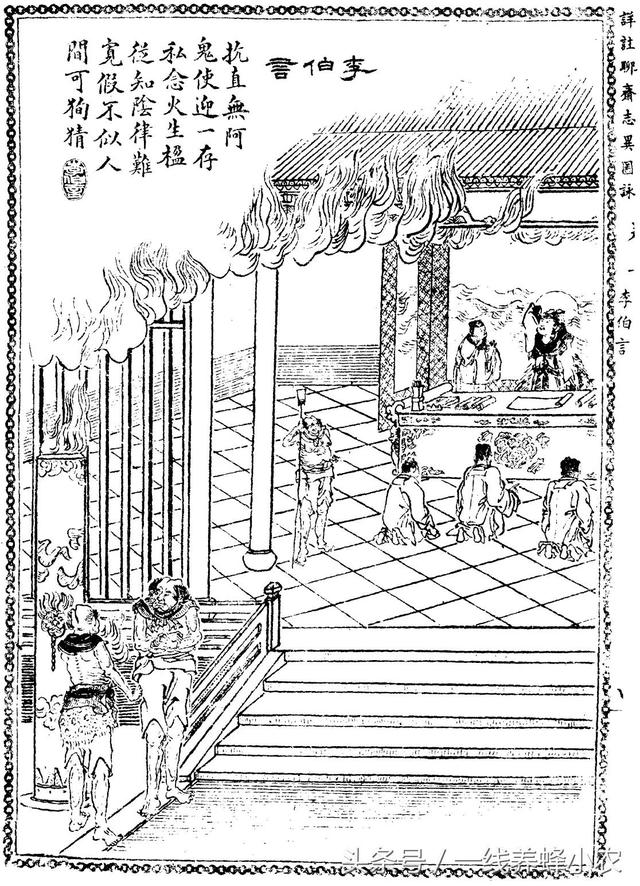 詳註聊齋志異圖詠
一 李伯言
李伯言
抗直無阿
鬼使迎一存
私念火生楹
從知陰律難
寬假不似人
間可狥情
头条号 / 一线养蜂小农